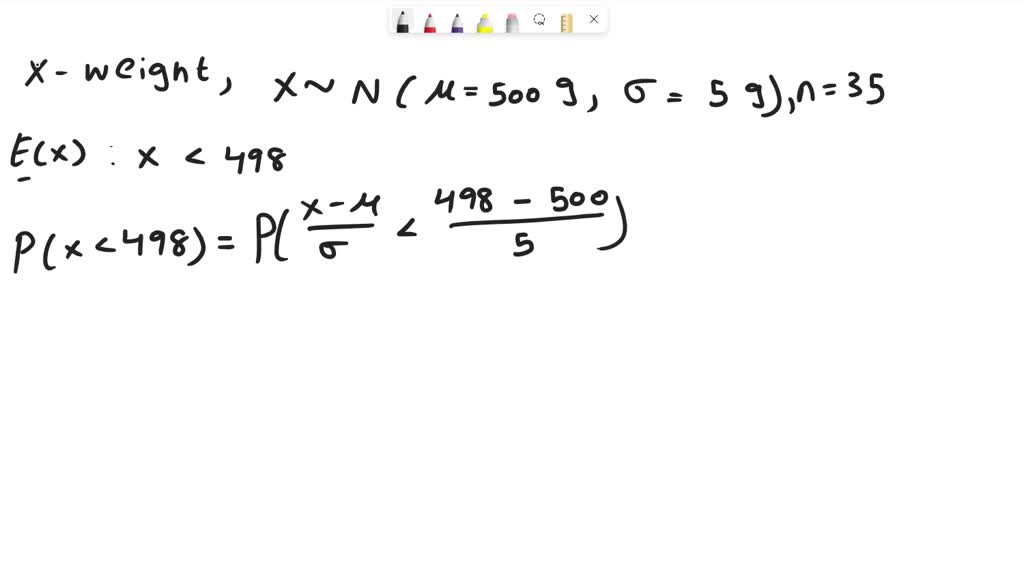 X - weight, X ~ N ( μ = 500 g, σ = 5 g), n = 35
E(x) : x < 498
P(x < 498) = P( (x - μ)/σ < (498 - 500)/5 )